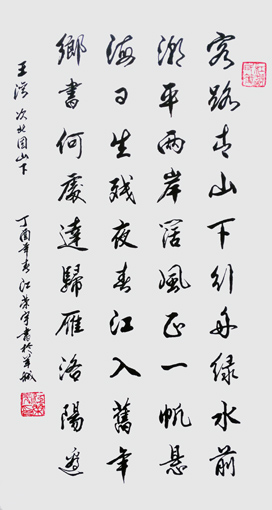 客路青山下行舟绿水前
潮平兩岸阔風正一帆懸
海日生残夜春江入舊年
鄉書何處達歸雁洛陽邊
王湾 次北固山下 丁酉年春江荣宇書於羊城